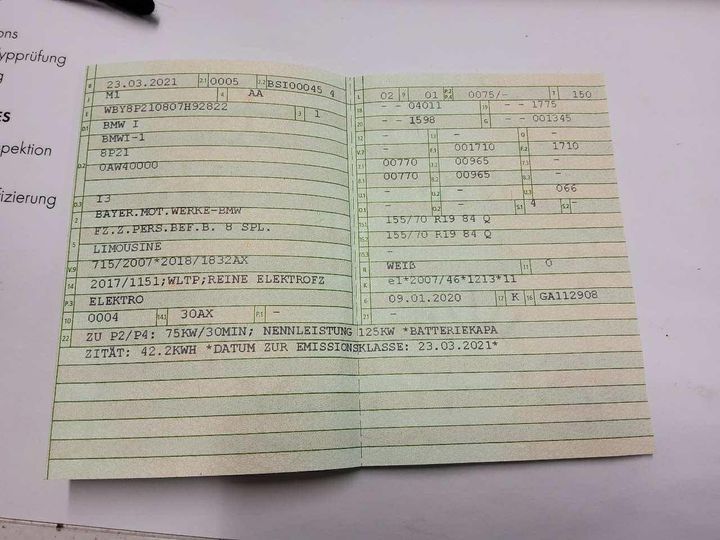 ons
ypprüfung
g
ES
pektion
fizierung
B 23.03.2021 2.1 0005 2.2 BSI00045 4
J M1 4 AA
E WBY8P210807H92822 3 1
D.1 BMW I
BMWI-1
D.2 8P21
0AW40000
D.3 I3
2 BAYER.MOT.WERKE-BMW
5 FZ.Z.PERS.BEF.B. 8 SPL.
LIMOUSINE
V.9 715/2007*2018/1832AX
14 2017/1151;WLTP;REINE ELEKTROFZ
P.3 ELEKTRO
10 0004 14.1 30AX P.1 -
22 ZU P2/P4: 75KW/30MIN; NENNLEISTUNG 125KW *BATTERIEKAPA
ZITÄT: 42.2KWH *DATUM ZUR EMISSIONSKLASSE: 23.03.2021*
L 02 9 01 P.2 P.4 0075/- T 150
18 - - 04011 19 - - 1775
20 - - 1598 G - - 001345
12 - 13 - Q -
V.7 - F.1 001710 F.2 1710
7.1 00770 7.2 00965 7.3 -
8.1 00770 8.2 00965 8.3 -
U.1 - U.2 - U.3 066
O.1 - O.2 - S.1 4 S.2 -
15.1 155/70 R19 84 Q
15.2 155/70 R19 84 Q
15.3 -
R WEIß 11 0
K e1*2007/46*1213*11
6 09.01.2020 17 K 16 GA112908
21 -